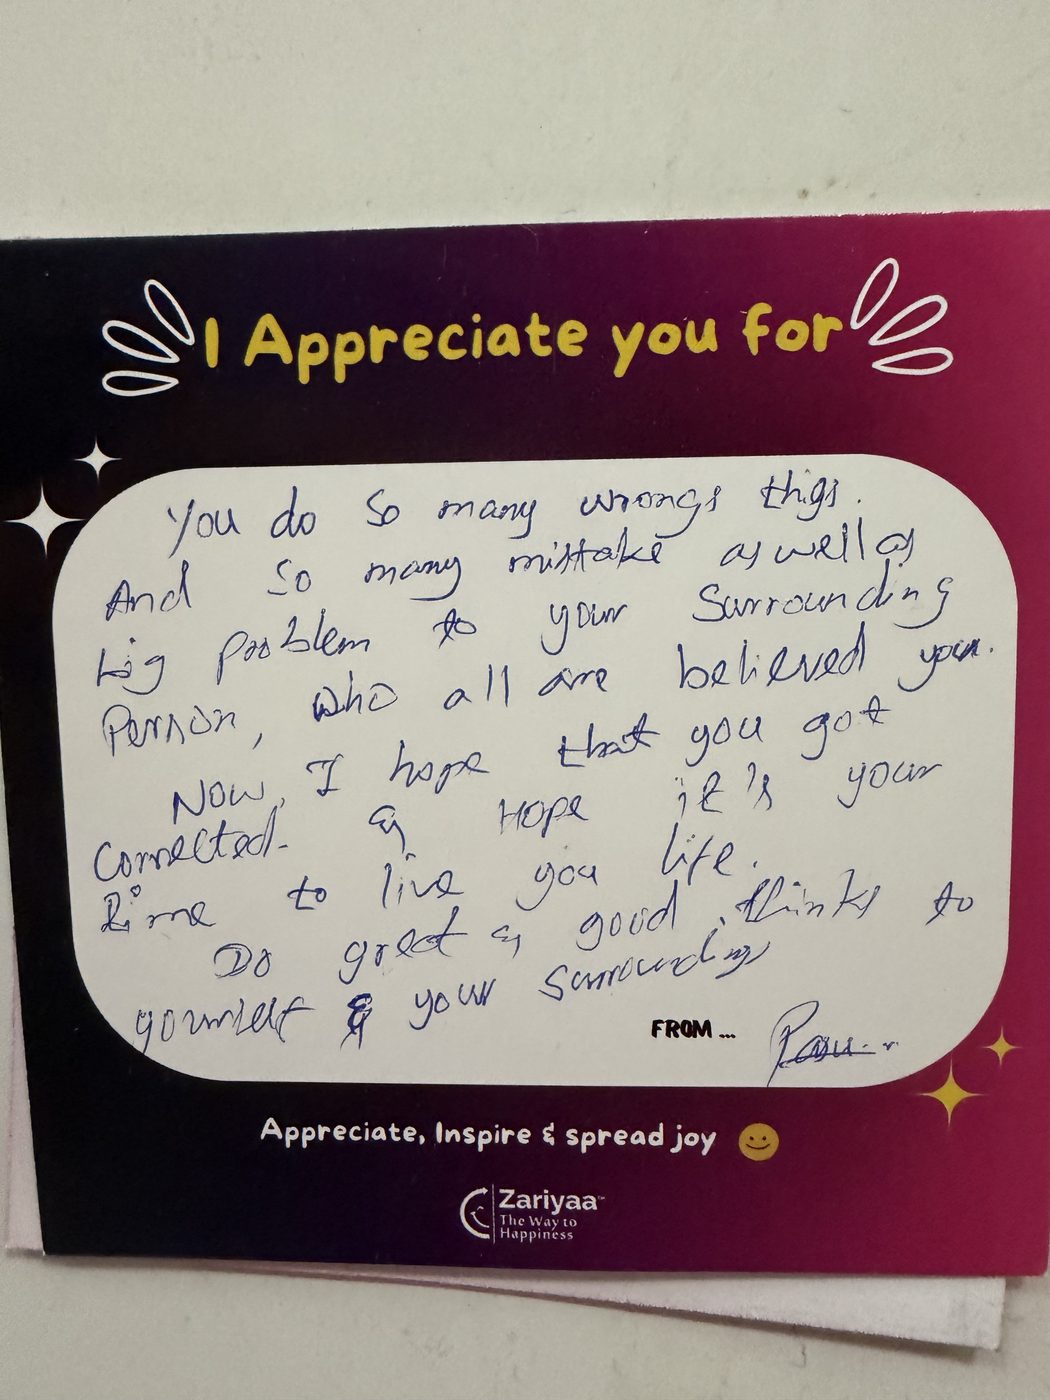 I Appreciate you for
You do so many wrongs thigs.
And so many mistake as well as
big problem to your Surrounding
Person, who all are believed you.
Now, I hope that you got
Corrected. & Hope it's your
time to live you life.
Do great & good thinks to
yourself & your surrounding
FROM ...
Appreciate, Inspire & spread joy
Zariyaa™
The Way to
Happiness